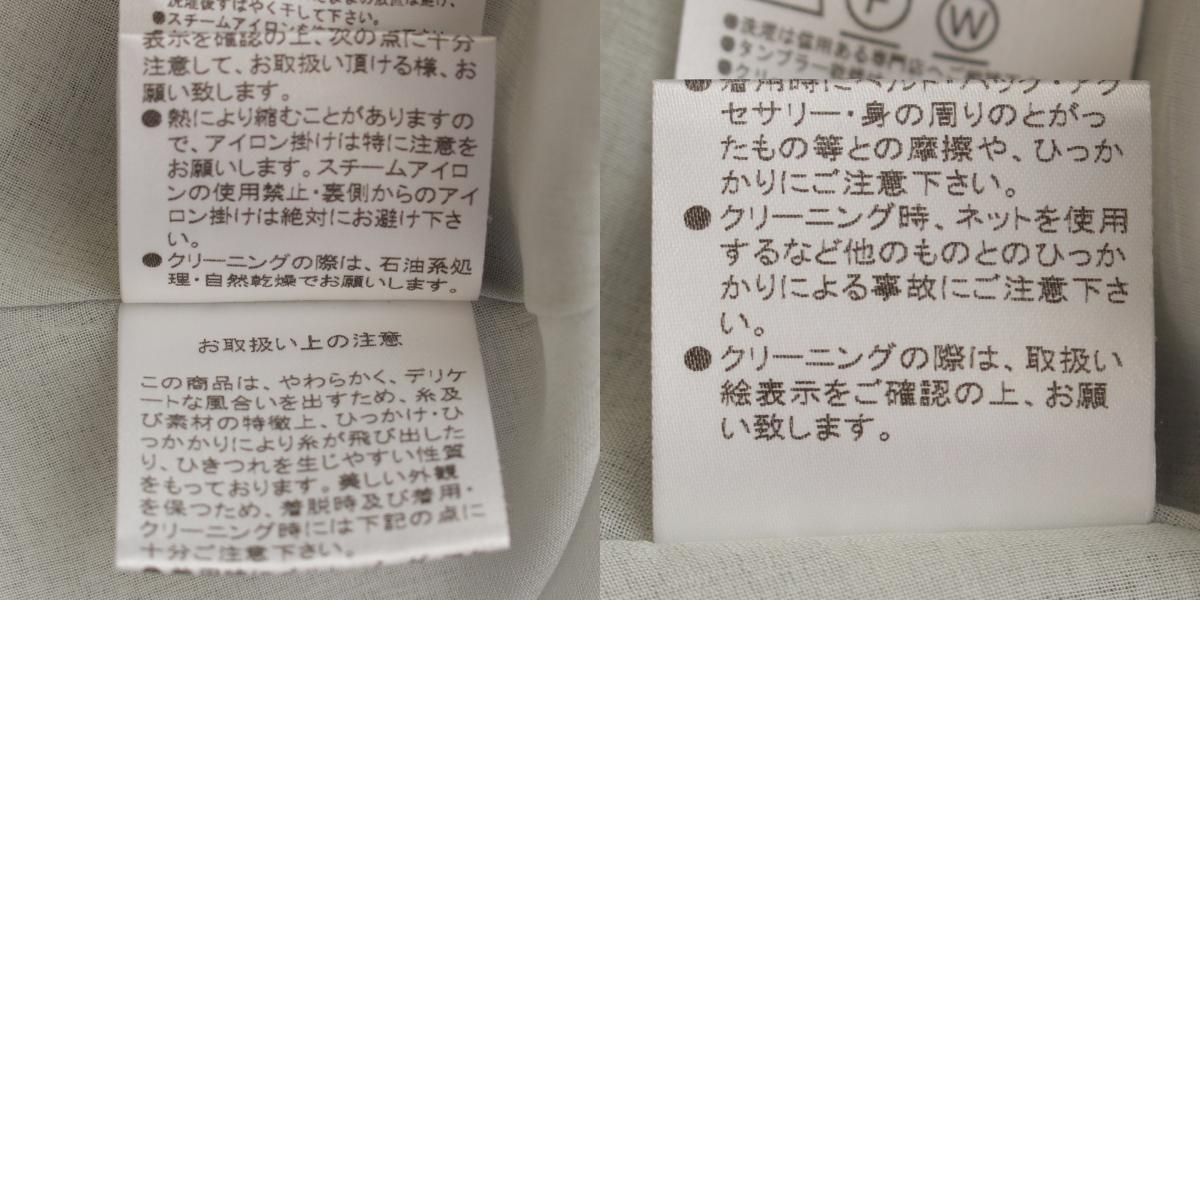 洗濯後すばやく干して下さい。
表示を確認の上、次の点に十分
注意して、お取扱い頂ける様、お
願い致します。
●熱により縮むことがありますの
で、アイロン掛けは特に注意を
お願いします。スチームアイロ
ンの使用禁止・裏側からのアイ
ロン掛けは絶対にお避け下さ
い。
●クリーニングの際は、石油系処
理・自然乾燥でお願いします。
お取扱い上の注意
この商品は、やわらかく、デリケ
ートな風合いを出すため、糸及
び素材の特徴上、ひっかけ・ひ
っかかりにより糸が飛び出した
り、ひきつれを生じやすい性質
をもっております。美しい外観
を保つため、着脱時及び着用・
クリーニング時には下記の点に
十分ご注意下さい。
F W
●洗濯は信用ある専門店へ
●タンブラー乾燥は
●クリー
●着用時にベルト・バッグ・アク
セサリー・身の周りのとがっ
たもの等との摩擦や、ひっか
かりにご注意下さい。
●クリーニング時、ネットを使用
するなど他のものとのひっか
かりによる事故にご注意下さ
い。
●クリーニングの際は、取扱い
絵表示をご確認の上、お願
い致します。